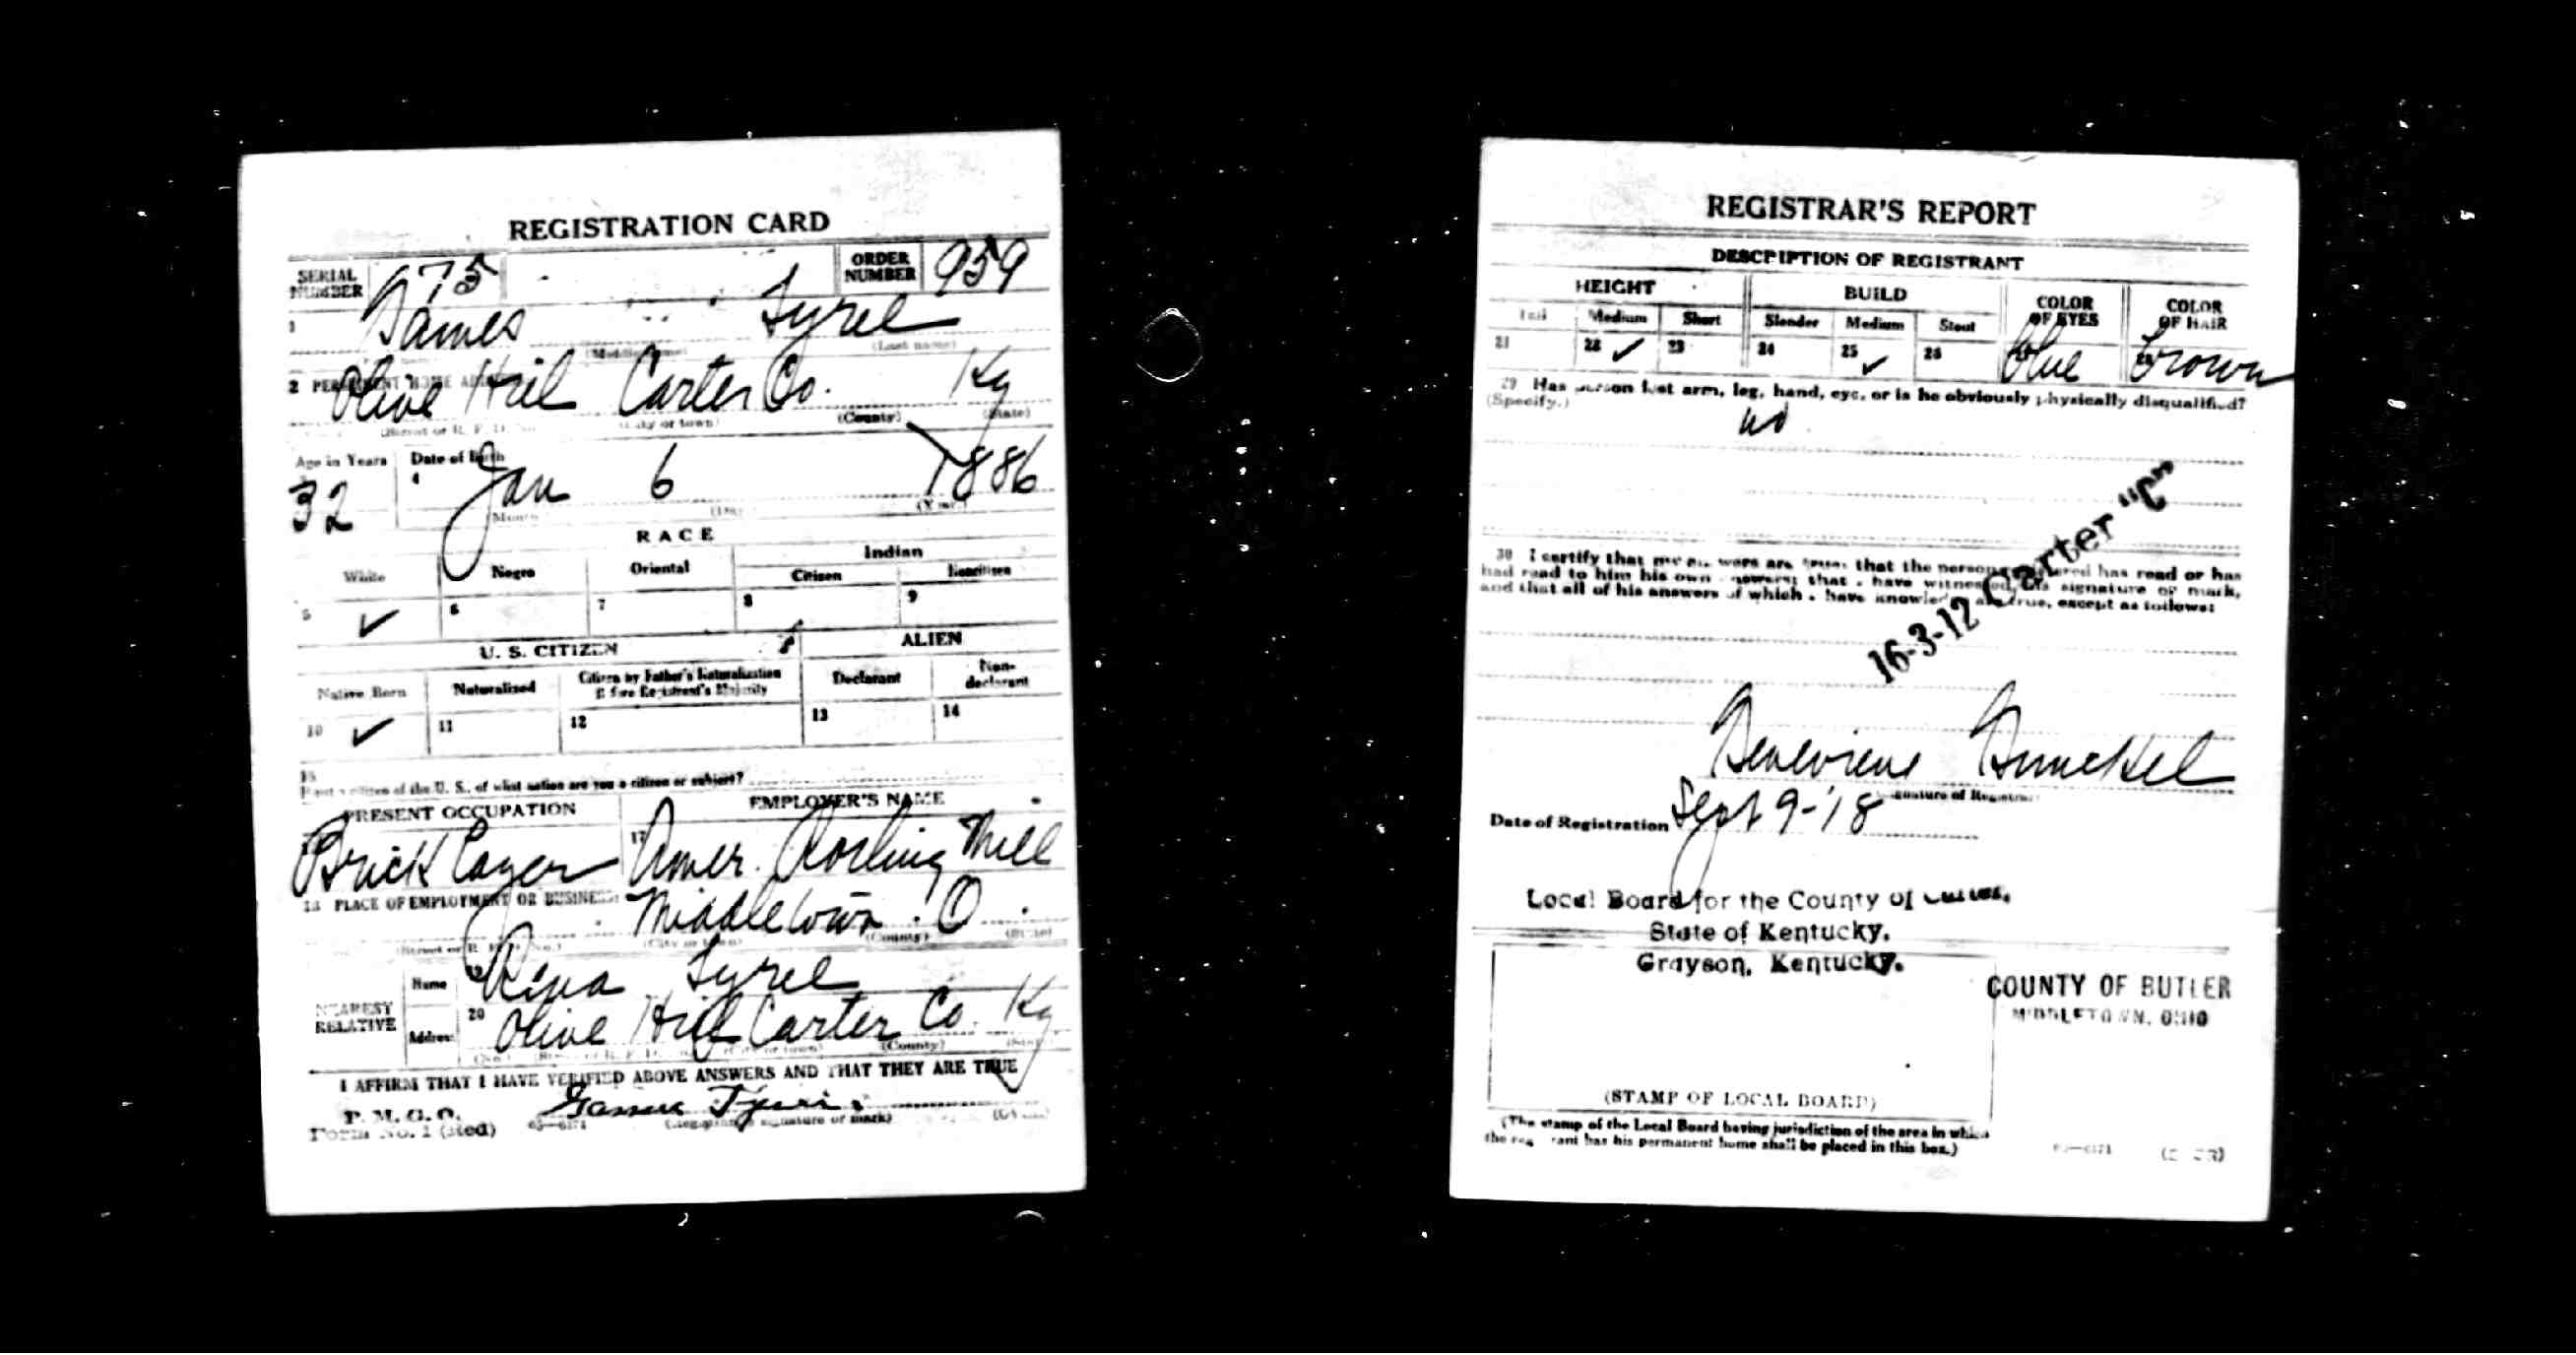 REGISTRATION CARD
SERIAL NUMBER 975 ORDER NUMBER 959
1 James Tyrel
(Middle name) (Last name)
2 PERMANENT HOME ADDRESS
Olive Hill Carter Co. Ky
(Street or R. F. D. No.) (City or town) (County) (State)
Age in Years Date of Birth
32 4 Jan 6 1886
(Month) (Day) (Year)
RACE
White Negro Oriental Indian
Citizen Noncitizen
5 ✓ 6 7 8 9
U. S. CITIZEN ALIEN
Native Born Naturalized Citizen by Father's Naturalization Before Registrant's Majority Declarant Non-declarant
10 ✓ 11 12 13 14
15
If not a citizen of the U. S., of what nation are you a citizen or subject?
PRESENT OCCUPATION EMPLOYER'S NAME
Brick Layer 17 Amer. Rolling Mill
18 PLACE OF EMPLOYMENT OR BUSINESS:
Middletown O
(Street or R. F. D. No.) (City or town) (County) (State)
NEAREST RELATIVE
Name 19 Tyrel
Address 20 Olive Hill Carter Co. Ky
(No.) (Street or R. F. D. No.) (City or town) (County) (State)
I AFFIRM THAT I HAVE VERIFIED ABOVE ANSWERS AND THAT THEY ARE TRUE
P. M. G. O.
Form No. 1 (Red) 03—6171 (Registrant's signature or mark)
REGISTRAR'S REPORT
DESCRIPTION OF REGISTRANT
HEIGHT BUILD COLOR OF EYES COLOR OF HAIR
Tall Medium Short Slender Medium Stout
21 22 ✓ 23 24 25 ✓ 26 blue brown
29 Has person lost arm, leg, hand, eye, or is he obviously physically disqualified?
(Specify.)
no
30 I certify that my answers are true; that the person registered has read or has
had read to him his own answers; that I have witnessed his signature or mark,
and that all of his answers of which I have knowledge are true, except as follows:
16-3-12 Carter "C"
Genevieve Gunckel
(Signature of Registrar)
Date of Registration Sept 9-'18
Local Board for the County of Carter,
State of Kentucky.
Grayson, Kentucky.
COUNTY OF BUTLER
MIDDLETOWN, OHIO
(STAMP OF LOCAL BOARD)
(The stamp of the Local Board having jurisdiction of the area in which
the registrant has his permanent home shall be placed in this box.)
03—6171 (OVER)